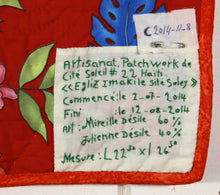 C2014-11-8
Artisanat. Patchwork de
Cité Soleil # 22 Haiti.
<<Egliz Imakile sité Soley>>
Commencé: le 2-07-2014
Fini : le 12-08-2014
Art: Mireille Désile 60%
Julienne Désile 40%
Mesure: L22 30 X l 26 30